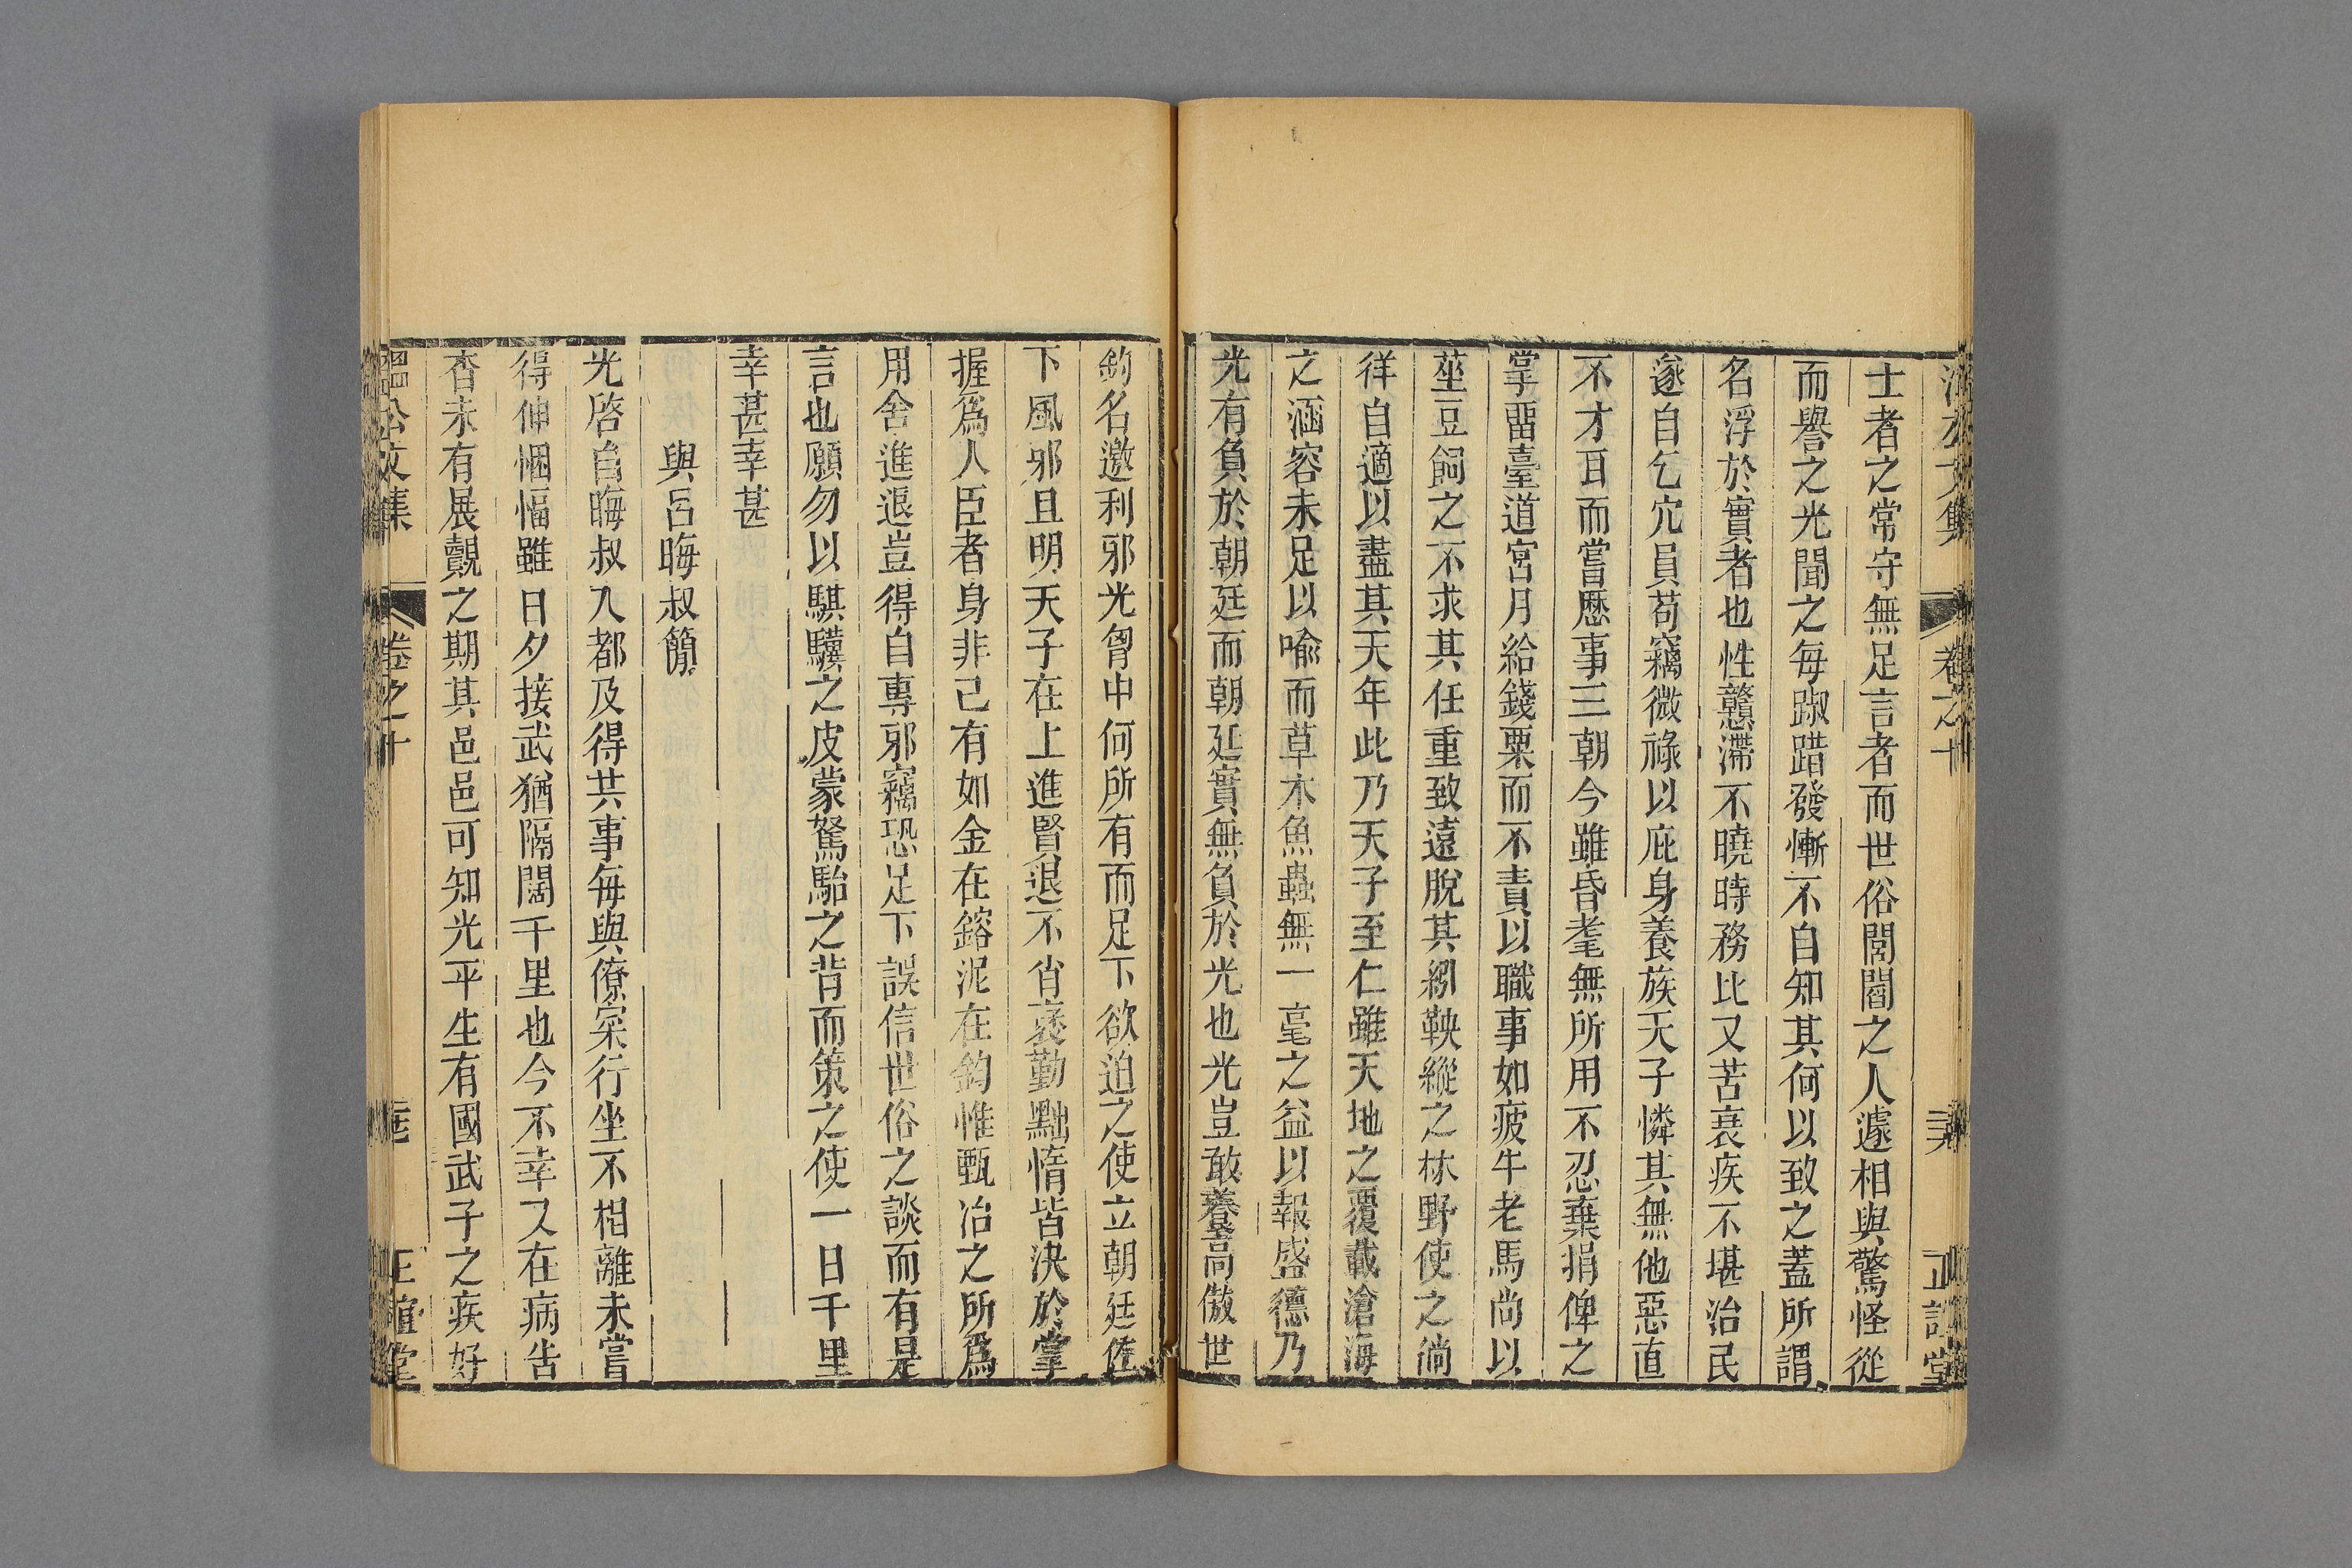 士者之常守無足言者而世俗閭閻之人遽相與驚怪從
而譽之光聞之每踧踖發慚不自知其何以致之蓋所謂
名浮於實者也性戇滯不曉時務比又苦衰疾不堪治民
遂自乞宂員苟竊微祿以庇身養族天子憐其無他惡直
不才耳而嘗歷事三朝今雖昏耄無所用不忍棄捐俾之
掌畱臺道宮月給錢粟而不責以職事如疲牛老馬尚以
莝豆飼之不求其任重致遠脫其紖鞅縱之林野使之徜
徉自適以盡其天年此乃天子至仁雖天地之覆載滄海
之涵容未足以喻而草木魚蟲無一毫之益以報盛德乃
光有負於朝廷而朝廷實無負於光也光豈敢養高傲世
釣名邀利邪光胷中何所有而足下欲迫之使立朝廷佐
下風邪且明天子在上進賢退不肖褒勤黜惰皆決於掌
握爲人臣者身非己有如金在鎔泥在鈞惟甄冶之所爲
用舍進退豈得自專邪竊恐足下誤信世俗之談而有是
言也願勿以騏驥之皮蒙駑駘之背而策之使一日千里
幸甚幸甚
與呂晦叔簡
光啓自晦叔入都及得共事每與僚寀行坐不相離未嘗
得伸悃愊雖日夕接武猶隔闊千里也今不幸又在病告
杳未有展覿之期其邑邑可知光平生有國武子之疾好
溫公文集
卷之十
正誼堂